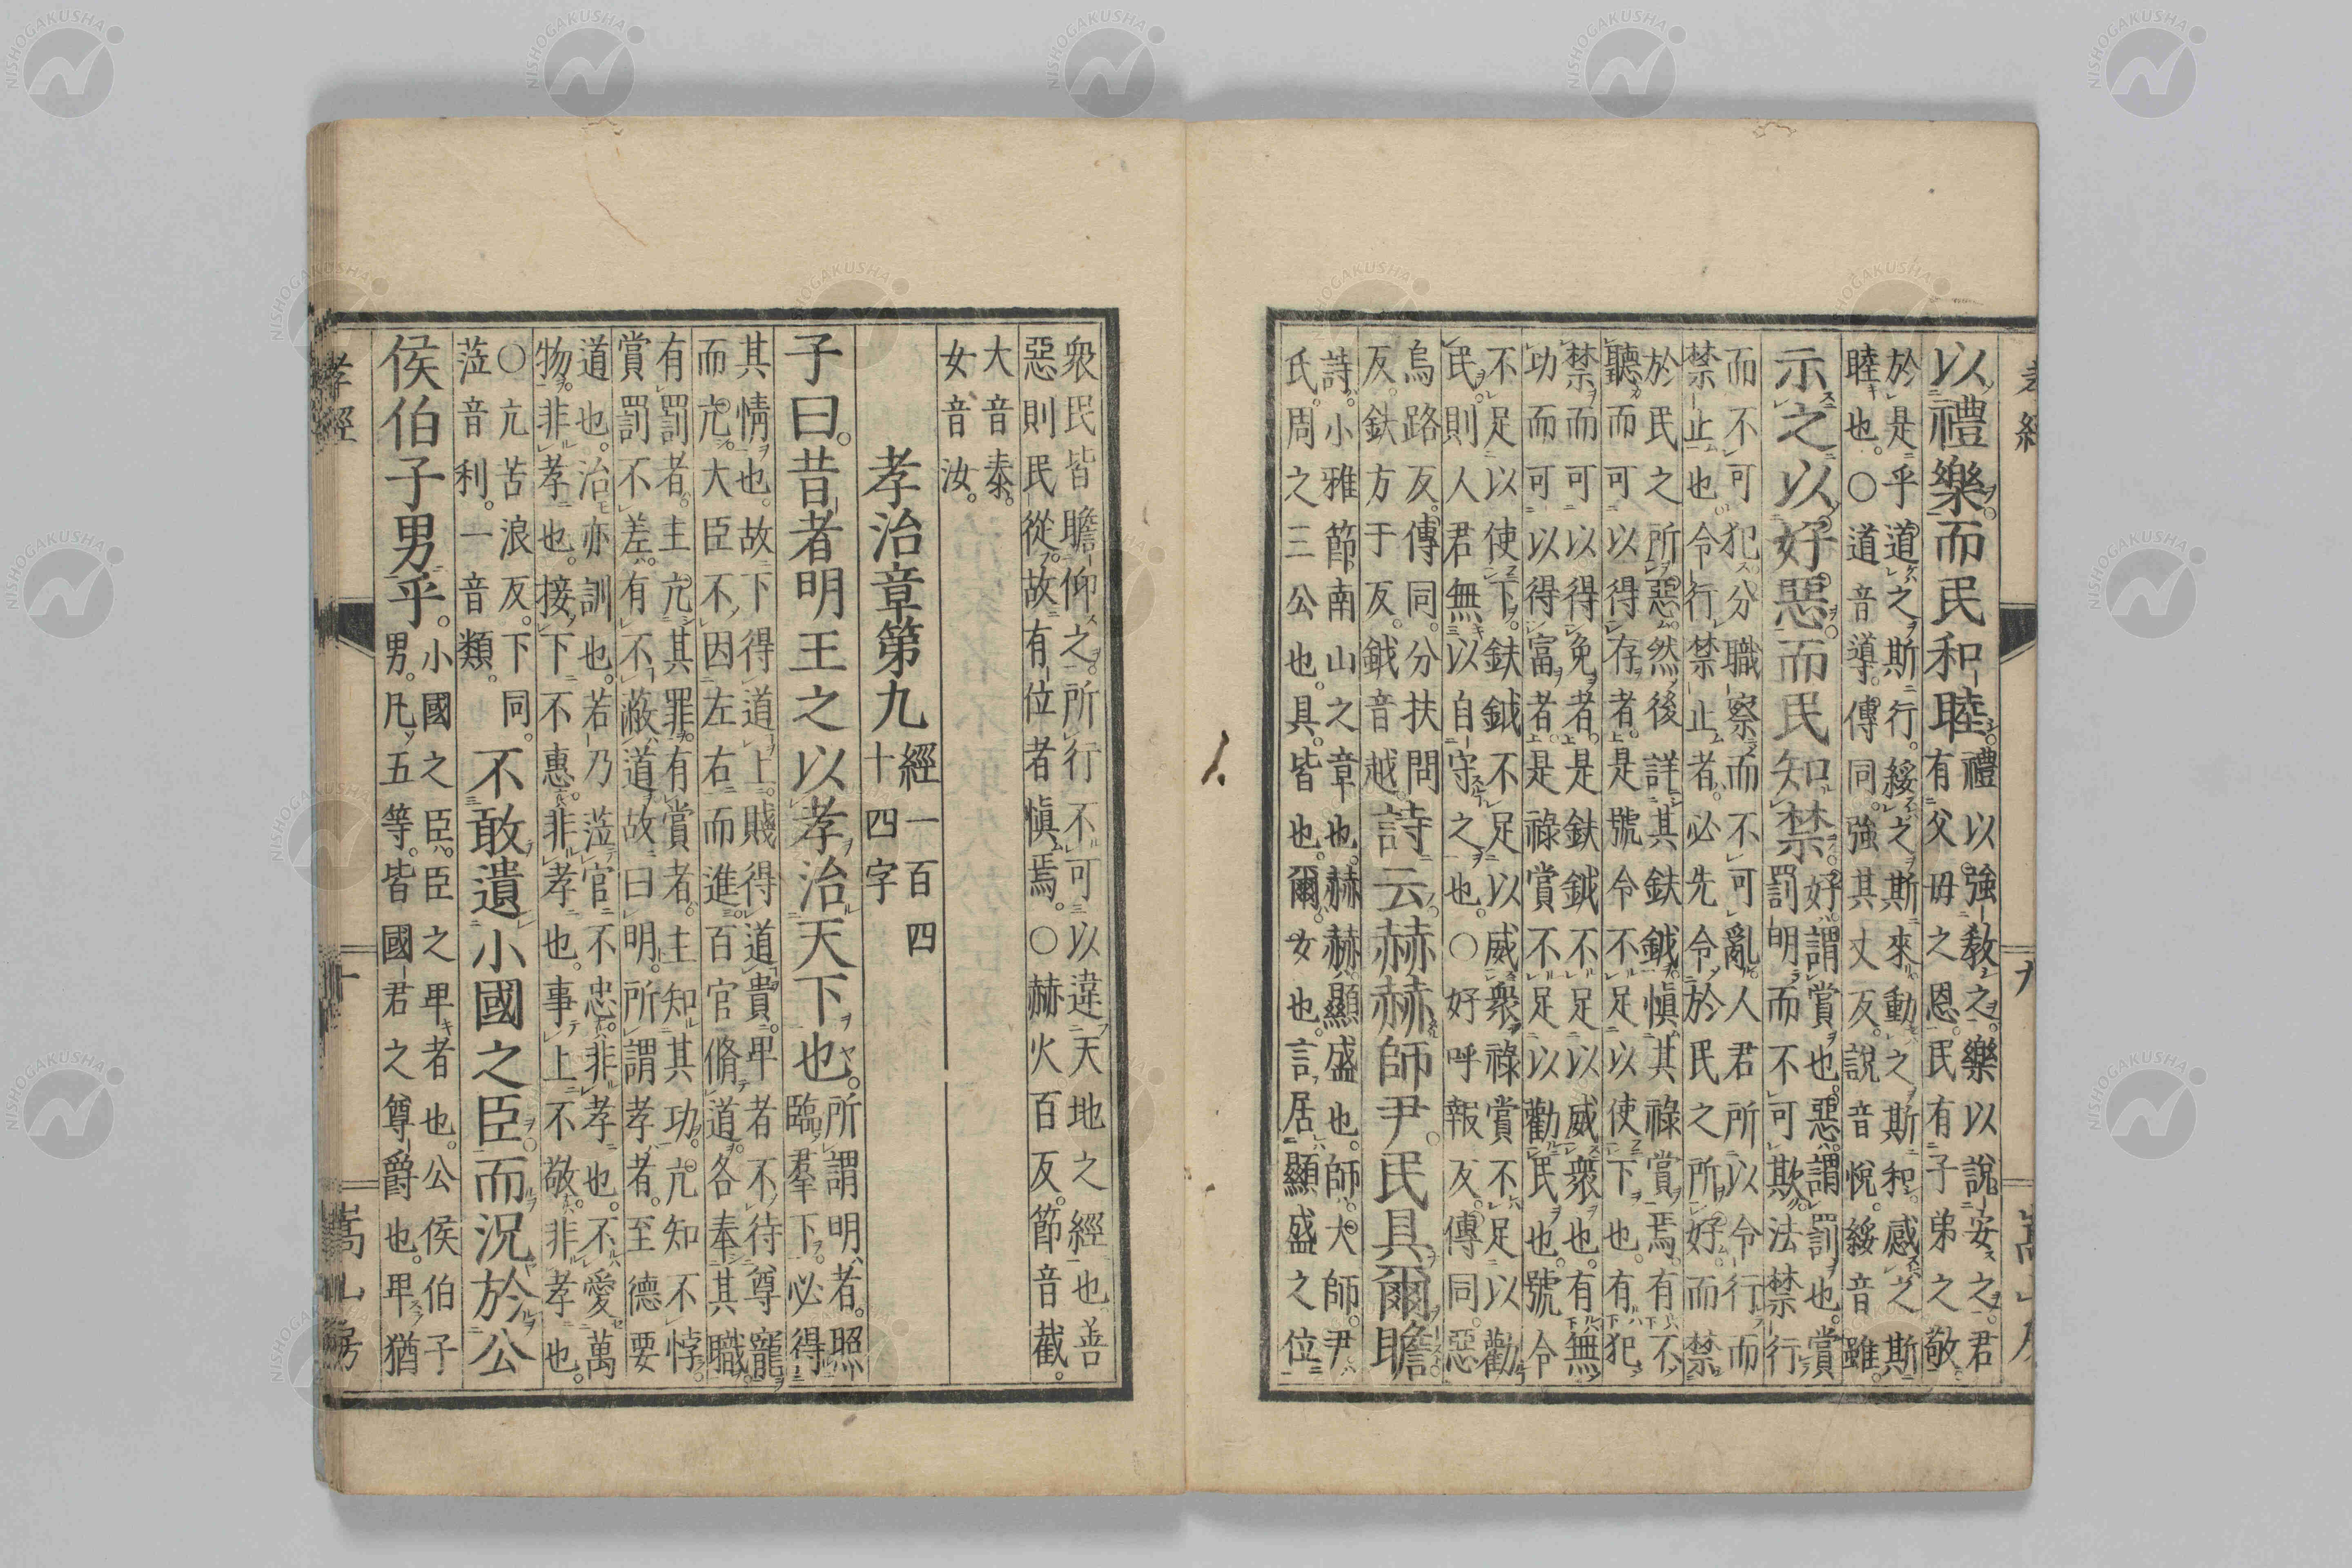 九
以禮樂而民和睦。
禮以強教之。樂以說安之。君
有父母之恩。民有子弟之敬。
於是乎道之斯行。綏之斯來。動之斯和。感之斯
睦也。○道音導。傳同。強其丈反。說音悅。綏音雖。
示之以好惡。而民知禁。
好謂賞也。惡謂罰也。賞
罰明而不可欺。法禁行
而不可犯。分職察而不可亂。人君所以令行而
禁止也。令行禁止者。必先令於民之所好。而禁
於民之所惡。然後詳其鈇鉞。愼其祿賞焉。有不
聽而可以得存者。是號令不足以使下也。有犯
禁而可以得免者。是鈇鉞不足以威衆也。有無
功而可以得富者。是祿賞不足以勸民也。號令
不足以使下。鈇鉞不足以威衆。祿賞不足以勸
民。則人君無以自守之也。○好呼報反。傳同。惡
烏路反。傳同。分扶問
反。鈇方于反。鉞音越。
詩云。赫赫師尹。民具爾瞻
詩。小雅節南山之章也。赫赫顯盛也。師。大師。尹
氏。周之三公也。具。皆也。爾。女也。言居顯盛之位
衆民皆瞻仰之。所行不可以違天地之經也。善
惡則民從。故有位者愼焉。○赫火百反。節音截。
大音泰。
女音汝。
孝治章第九
經一百四
十四字
子曰。昔者明王之以孝治天下也。
所謂明者。照
臨羣下。必得
其情也。故下得道上。賤得道貴。卑者不待尊寵
而亢。大臣不因左右而進。百官脩道。各奉其職
有罰者。主亢其罪。有賞者。主知其功。亢知不悖
賞罰不差。有不蔽道。故曰明。所謂孝者。至德要
道也。治亦訓也。若乃涖官不忠。非孝也。不愛萬
物。非孝也。接下不惠。非孝也。事上不敬。非孝也。
○亢苦浪反。下同。
涖音利。一音類。
不敢遺小國之臣。而況於公
侯伯子男乎。
小國之臣。臣之卑者也。公侯伯子
男。凡五等。皆國君之尊爵也。卑猶
孝經
十
嵩山房